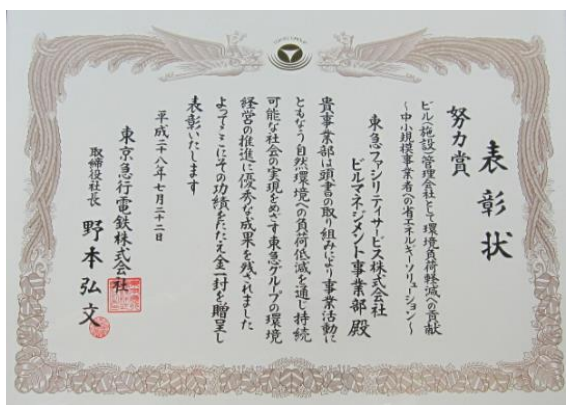 表彰状
努力賞
ビル(施設)管理会社として環境負荷軽減への貢献
～中小規模事業者への省エネルギーソリューション～
東急ファシリティサービス株式会社
ビルマネジメント事業部 殿
貴事業部は頭書の取り組みにより事業活動に
ともなう自然環境への負荷低減を通じ持続
可能な社会の実現をめざす東急グループの環境
経営の推進に優秀な成果を残されました
よってここにその功績をたたえ金一封を贈呈し
表彰いたします
平成二十八年七月二十二日
東京急行電鉄株式会社
取締役社長 野本弘文